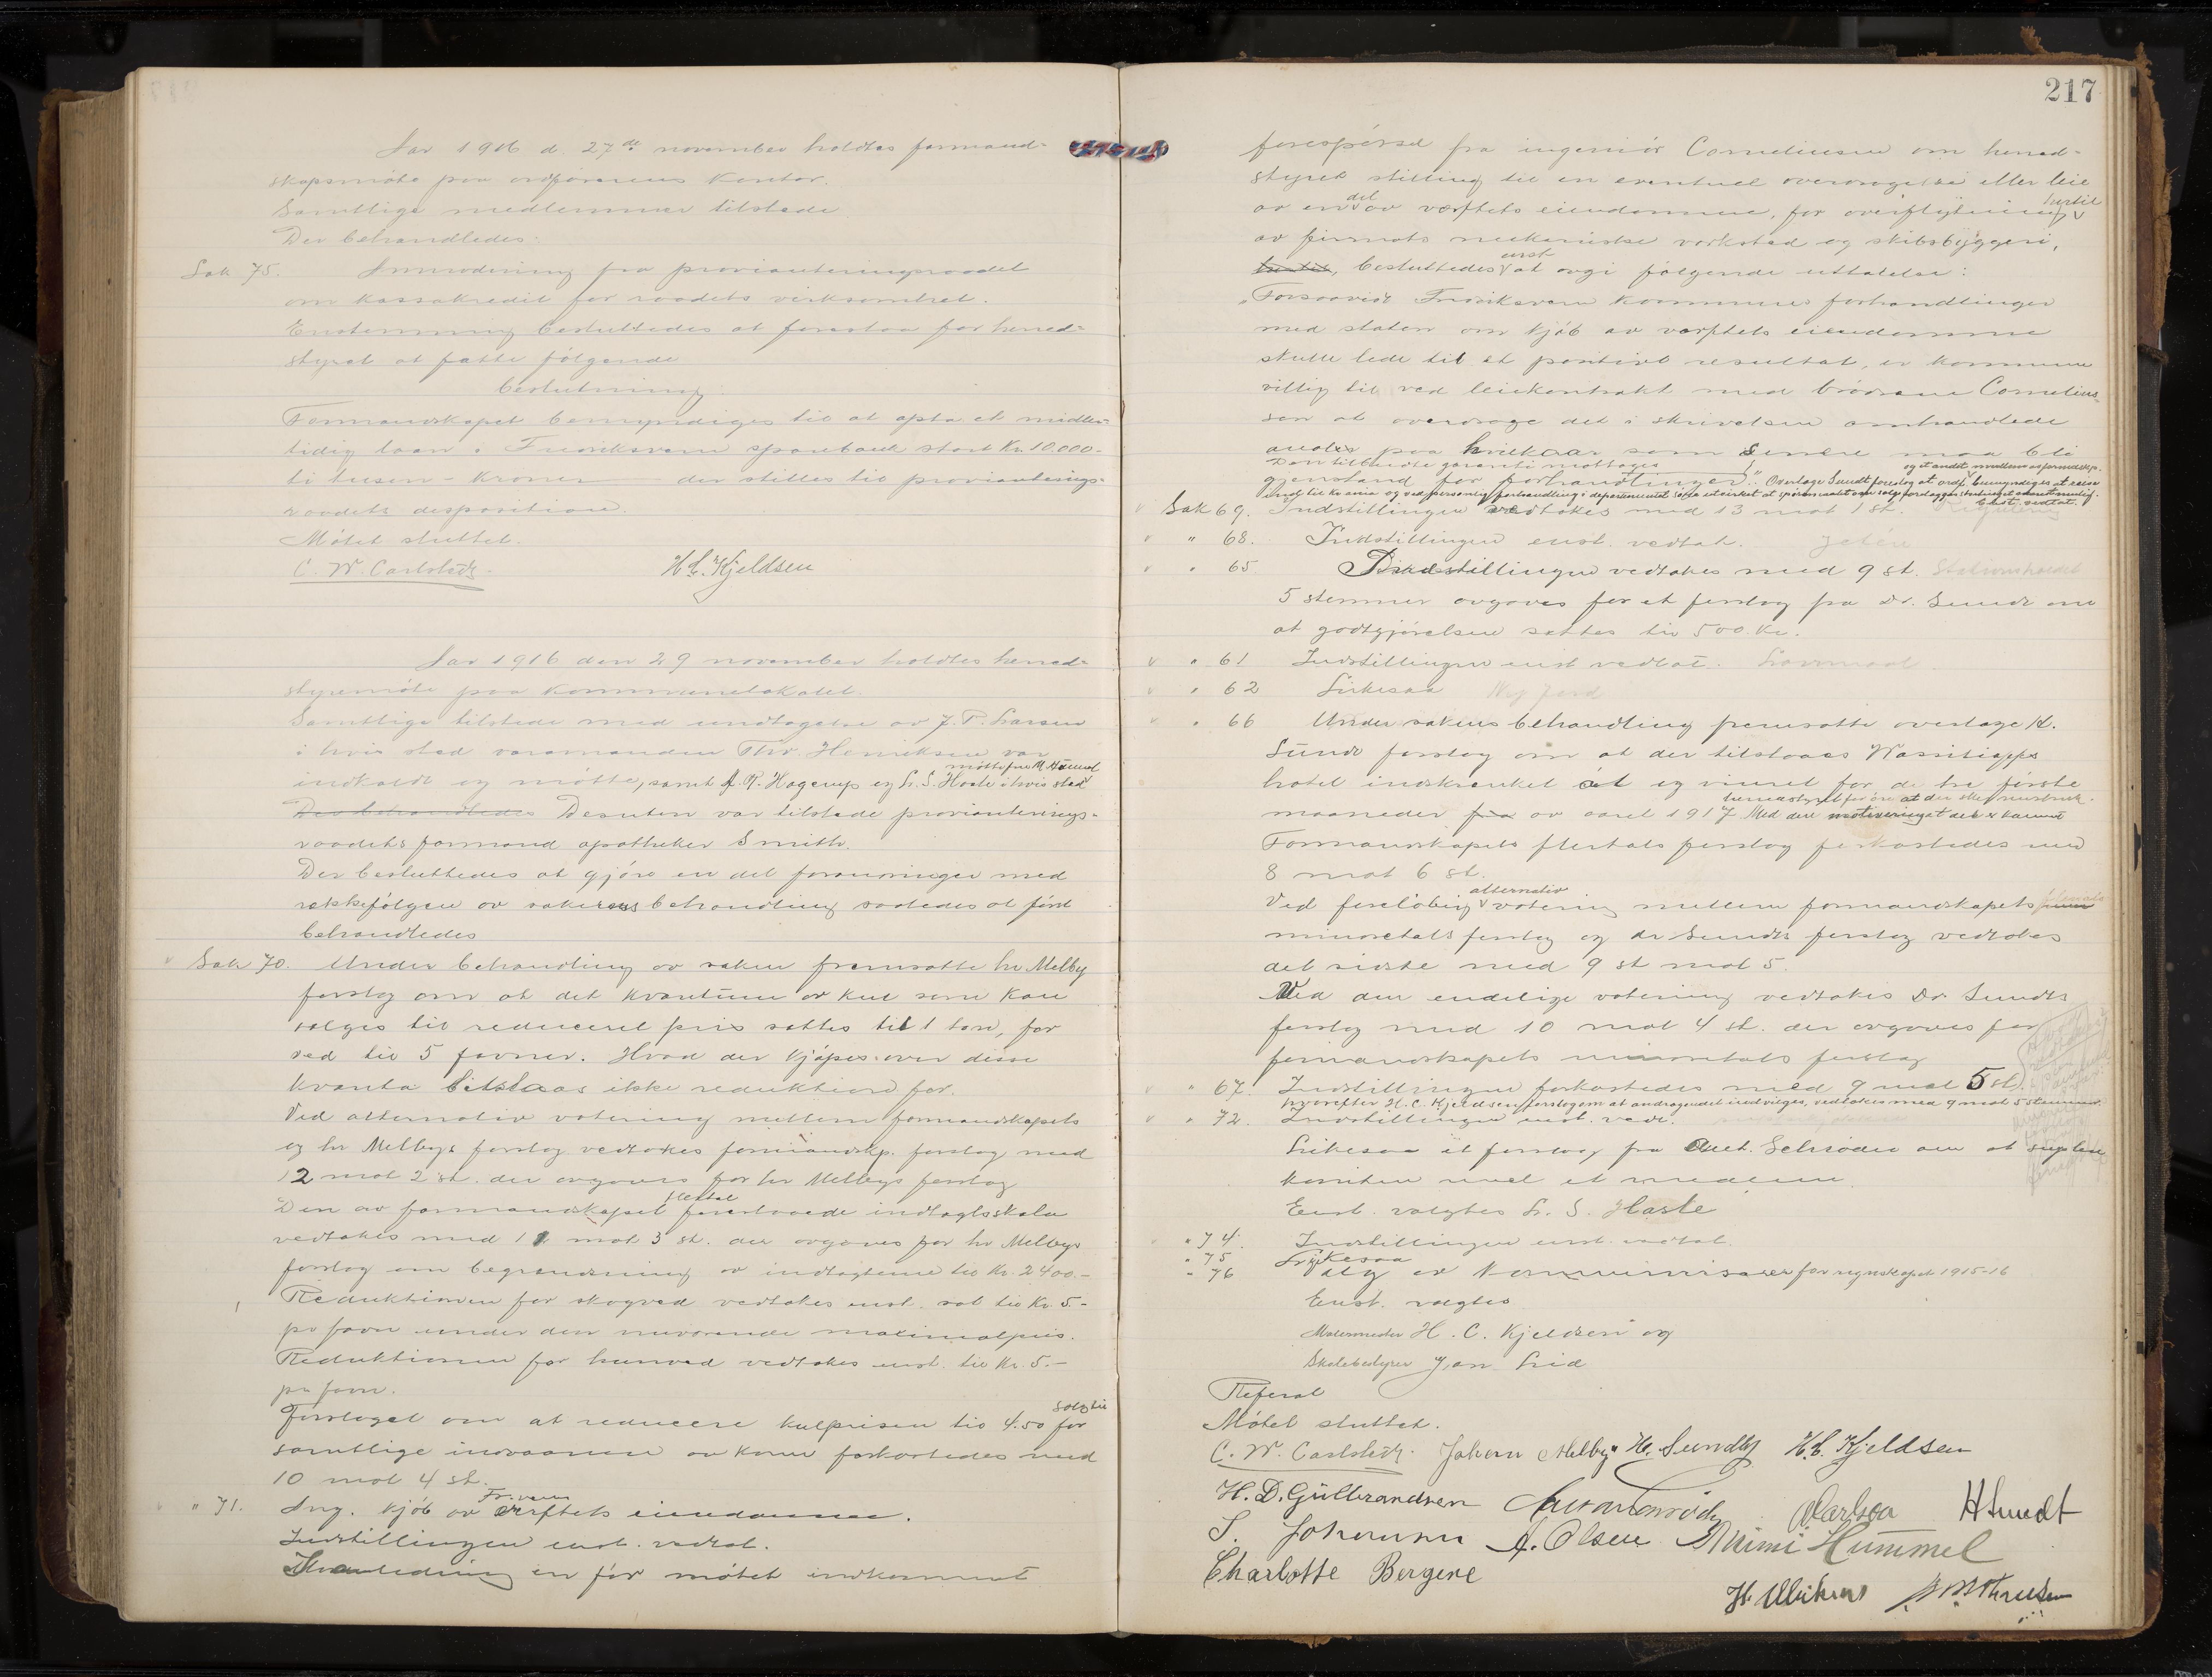 Aar 1916 d. 27de november holdtes formand-
skapsmöte paa ordförerens kontor.
Samtlige medlemmer tilstede
Der behandledes:
Sak 75. Anmodning fra provianteringsraadet
om kassakredit for raadets virksomhet.
Enstemmig besluttedes at foreslaa for hered-
styret at fatte følgende
beslutning:
Formandskapet bemyndiges til at opta et midler-
tidig laan i Fredriksvern sparebank stort Kr. 10.000.-
ti tusen - Kroner der stilles til provianterings-
raadets disposition.
Mötet sluttet.
C. W. Carlstedt. H. C. Kjeldsen
Aar 1916 den 29 november holdtes hered-
styremöte paa kommunelokalet.
Samtlige tilstede med undtagelse av J. P. Larsen
i hvis sted varamanden Thv. Henriksen var
møtte fru M. Hümmel
indkaldt og møtte, samt A. R. Hagerup og L. S. Haste i hvis sted
Der behandledes Desuten var tilstede provianterings-
raadets formand apotheker Smith.
Der besluttedes at gjøre en del forandringer med
rækkefølgen av sakernes behandling saaledes at först
behandledes
Sak 70. Under behandling av saken fremsatte hr Melby
forslag om at det kvantum av kul som kan
sælges til reduceret pris sættes til 1 ton, for
ved til 5 favner. Hvad der kjøpes over disse
kvanta tilstaaes ikke reduktion for.
Ved alternativ votering mellem formandskapets
og hr Melbys forslag vedtokes formandskp. forslag med
12 mot 2 st. der avgaves for hr Melbys forslag
flertal
Den av formandskapet foreslaaede indtægtsskala
vedtokes med 11 mot 3 st. der avgaves for hr Melbys
forslag om begrændsning av indtægterne til Kr. 2400.-
Reduktionen for skogved vedtokes enst. sat til Kr. 5.-
pr favn under den nuværende maximalpris.
Reduktionen for hunved vedtokes enst. til Kr. 5.-
pr favn.
solgt til
Forslaget om at reducere kulprisen til 4.50 for
samtlige indvaanere av komm forkastedes med
10 mot 4 st.
Fr.værn
" 71. Ang. kjöb av verftets eiendomme.
Indstillingen enst. vedtat.
I anledning en för mötet indkommet
217
forespörsel fra ingeniör Corneliussen om hered-
styrets stilling til en eventuel overdragelse eller leie
del hertil
av en av værftets eiendomme, for overflytning
av firmaets mekaniske verksted og skibsbyggeri,
enst
besluttedes at avgi følgende uttalelse:
"Forsaavidt Fredriksvern kommunes forhandlinger
med staten om kjöb av værftets eiendomme
skulle lede til et positivt resultat, er kommunen
villig til ved leiekontrakt med brödrene Cornelius-
sen at overdrage det i skrivelsen omhandlede
areal paa vilkaar som senere maa bli
Den tilbudte garanti mottages
og et andet medlem av formandskp.
gjenstand for forhandlinger." Overlæge Sundt foreslog at ordf. bemyndiges at reise
ind til Kr.ania og ved personlig forhandling i departementet söke utvirket at spörsmaalet om salg forelægges stortinget snarest mulig.
Enst. vedtat.
Sak 69. Indstillingen vedtokes med 13 mot 1 st. Regulering
" 68. Indstillingen enst. vedtat.
" 65 Indstillingen vedtokes med 9 st.
5 stemmer avgaves for et forslag fra Dr. Sundt om
at godtgjörelsen sættes til 500 Kr.
" 61 Indstillingen enst vedtat.
" 62 Likesaa
" 66 Under sakens behandling fremsatte overlæge H.
Sundt forslag om at der tilstaaes Wassilioffs
hotel indskrænket öl og vinret for de tre første
herredstyret før öre at der sker misbruk.
maaneder fra av aaret 1917 Med den motivering at det er kommet
Formandskapets flertals forslag forkastedes med
8 mot 6 st.
alternativ
Ved foreløbig votering mellem formandskapets
minoretets forslag og dr Sundts forslag vedtokes
det sidste med 9 st mot 5.
Ved den endelige votering vedtokes Dr. Sundts
forslag med 10 mot 4 st. der avgaves for
formandskapets minoretets forslag
" 67. Indstillingen forkastedes med 9 mot 5 st.
hvorefter H. C. Kjeldsens forslag om at andragendet indvilges, vedtokes med 9 mot 5 stemmer.
" 72. Indstillingen enst. vedt.
Likesaa et forslag fra Schröder om at suplere
komiteen med et medlem.
Enst. valgtes L. S. Haste
" 74. Indstillingen enst. vedtat.
" 75 Likesaa
" 76 Valg av for regnskapet 1915-16
Enst. valgtes
Malermester H. C. Kjeldsen og
Skolebestyrer Jan Lid
Referat
Mötet sluttet.
C. W. Carlstedt. Johan Melby. H. Sundby H. C. Kjeldsen
H. D. Gulbrandsen H Sundt
S. Johansen A. Olsen Mimi Hümmel
Charlotte Bergene